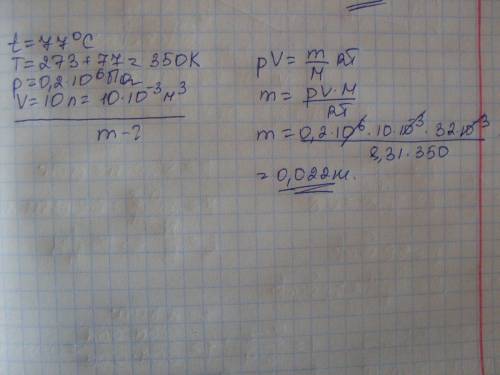 t = 77°C
T = 273 + 77 = 350K
p = 0,2·10⁶ Па
V = 10л = 10·10⁻³ м³
m - ?
pV = m/M RT
m = pV·M/RT
m = 0,2·10⁶·10·10⁻³·32·10⁻³/8,31·350
= 0,022